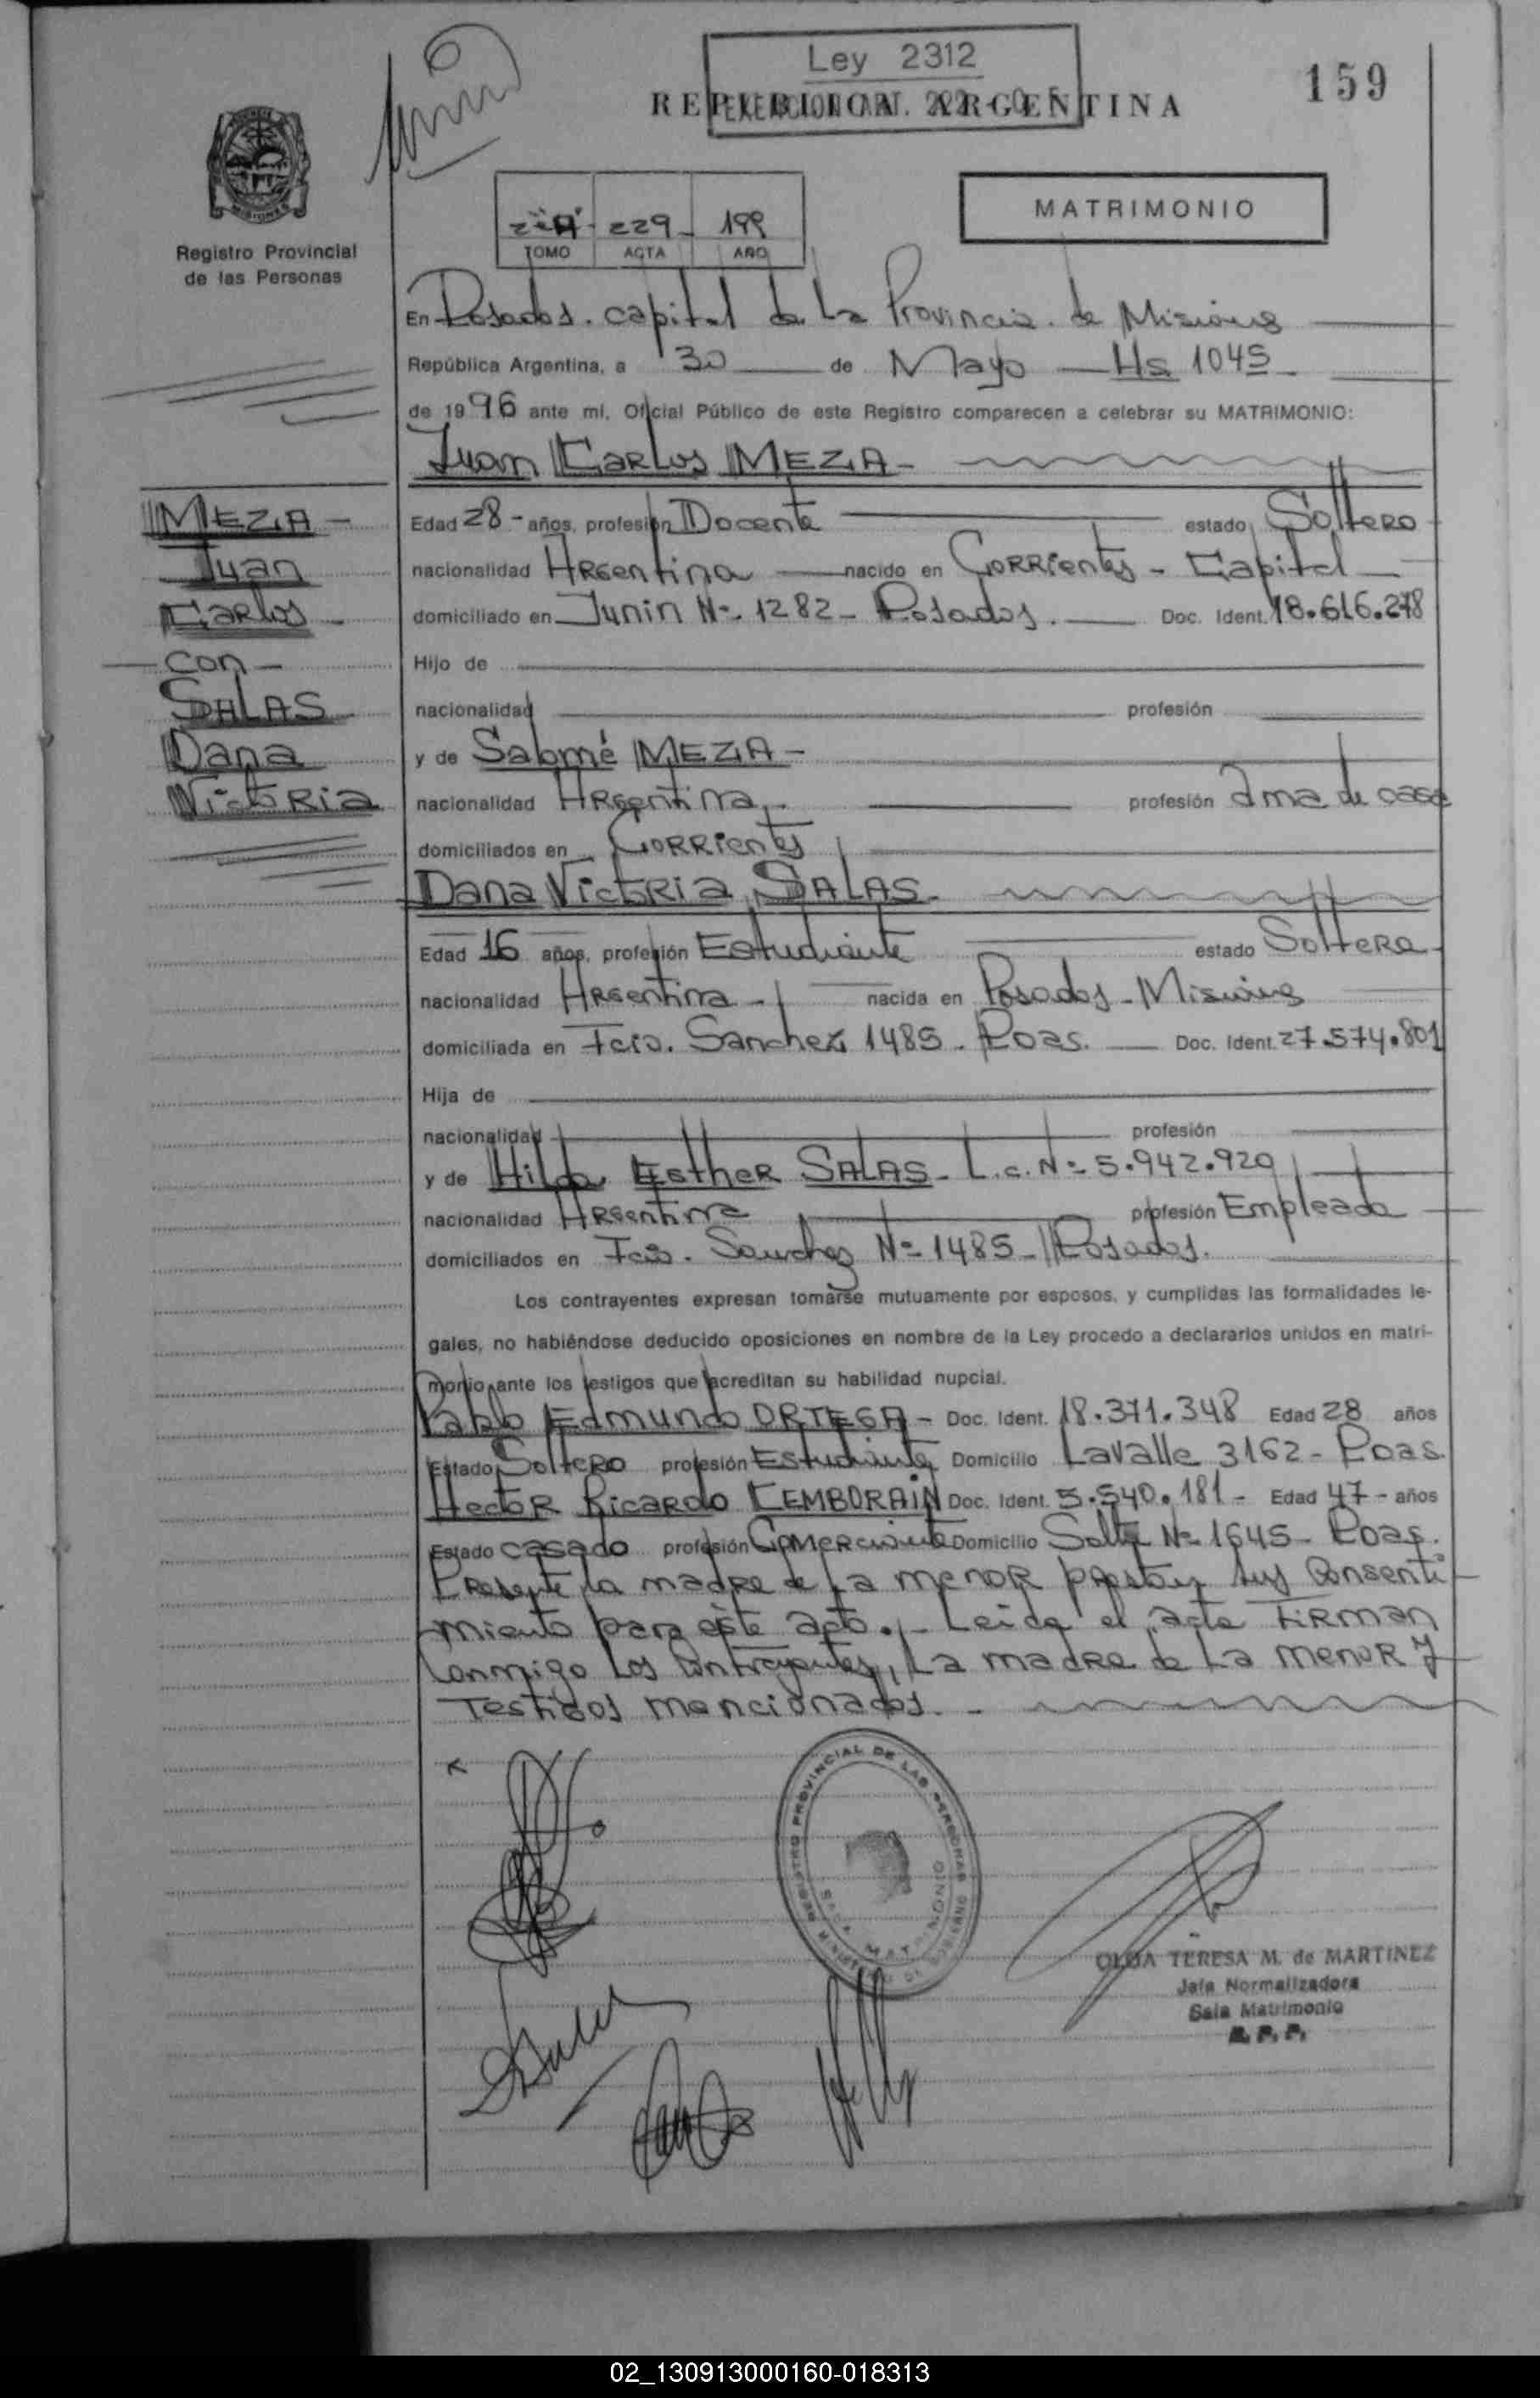 Ley 2312
REPUBLICA ARGENTINA
159
MATRIMONIO
2º "A" - 229 - 199
TOMO ACTA AÑO
Registro Provincial
de las Personas
En Posadas. capital de la Provincia. de Misiones
República Argentina, a 30 de Mayo - Hs 1045
de 1996 ante mi, Oficial Público de este Registro comparecen a celebrar su MATRIMONIO:
Juan Carlos MEZA -
MEZA -
Juan
Carlos -
con -
SALAS
Dana
Victoria
Edad 28 - años, profesión Docente estado Soltero
nacionalidad Argentina nacido en Corrientes - Capital
domiciliado en Junin Nº. 1282 - Posadas. Doc. Ident. 18.616.278
Hijo de
nacionalidad profesión
y de Salomé MEZA -
nacionalidad Argentina. profesión ama de casa
domiciliados en Corrientes
Dana Victoria SALAS.
Edad 16 años, profesión Estudiante estado Soltera
nacionalidad Argentina - nacida en Posadas - Misiones
domiciliada en Fcio. Sanchez 1485 - Poas. Doc. Ident. 27.574.801
Hija de
nacionalidad profesión
y de Hilda Esther SALAS - L.c. Nº 5.942.929
nacionalidad Argentina profesión Empleada
domiciliados en Fcio. Sanchez Nº 1485 - Posadas.
Los contrayentes expresan tomarse mutuamente por esposos, y cumplidas las formalidades le-
gales, no habiéndose deducido oposiciones en nombre de la Ley procedo a declararlos unidos en matri-
monio ante los testigos que acreditan su habilidad nupcial.
Pablo Edmundo ORTEGA - Doc. Ident. 18.371.348 Edad 28 años
Estado Soltero profesión Estudiante Domicilio Lavalle 3162 - Poas.
Hector Ricardo CEMBORAIN Doc. Ident. 5.540.181 - Edad 47 - años
Estado casado profesión Comerciante Domicilio Salta Nº 1645 - Poas.
Presente la madre de la menor prestan sus consenti
miento para este acto. - Leida el acta firman
conmigo los contrayentes, la madre de la menor y
testigos mencionados. -
REGISTRO PROVINCIAL DE LAS PERSONAS
SALA MATRIMONIO
MINISTERIO DE GOBIERNO
OLGA TERESA M. de MARTINEZ
Jefa Normalizadora
Sala Matrimonio
R. P. P.
02_130913000160-018313